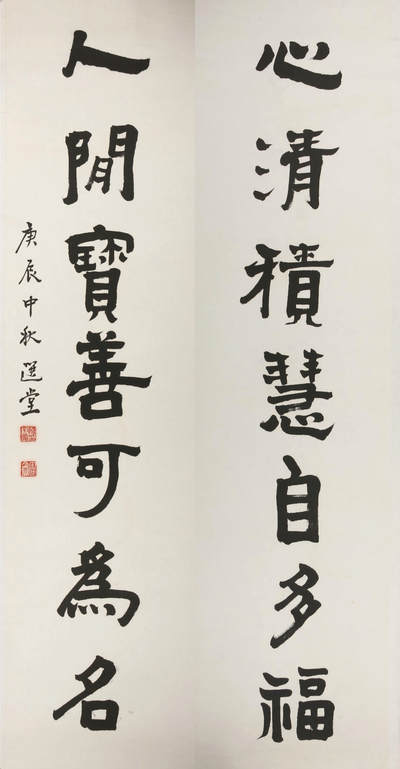 心清積慧自多福
人閒寶善可為名
庚辰中秋選堂